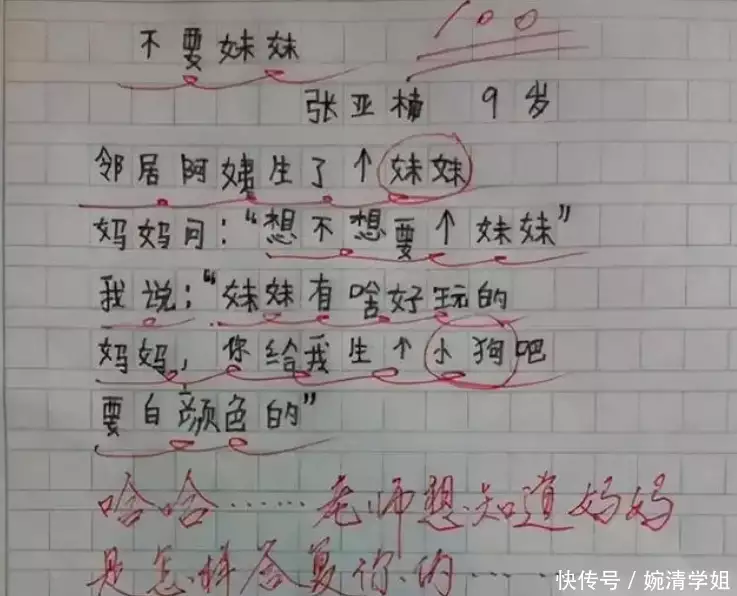 不要妹妹
100
张亚楠 9岁
邻居阿姨生了个妹妹
妈妈问：“想不想要个妹妹”
我说：“妹妹有啥好玩的
妈妈，你给我生个小狗吧
要白颜色的”
哈哈……老师想知道妈妈
是怎样答复你的……
快传号／婉清学姐